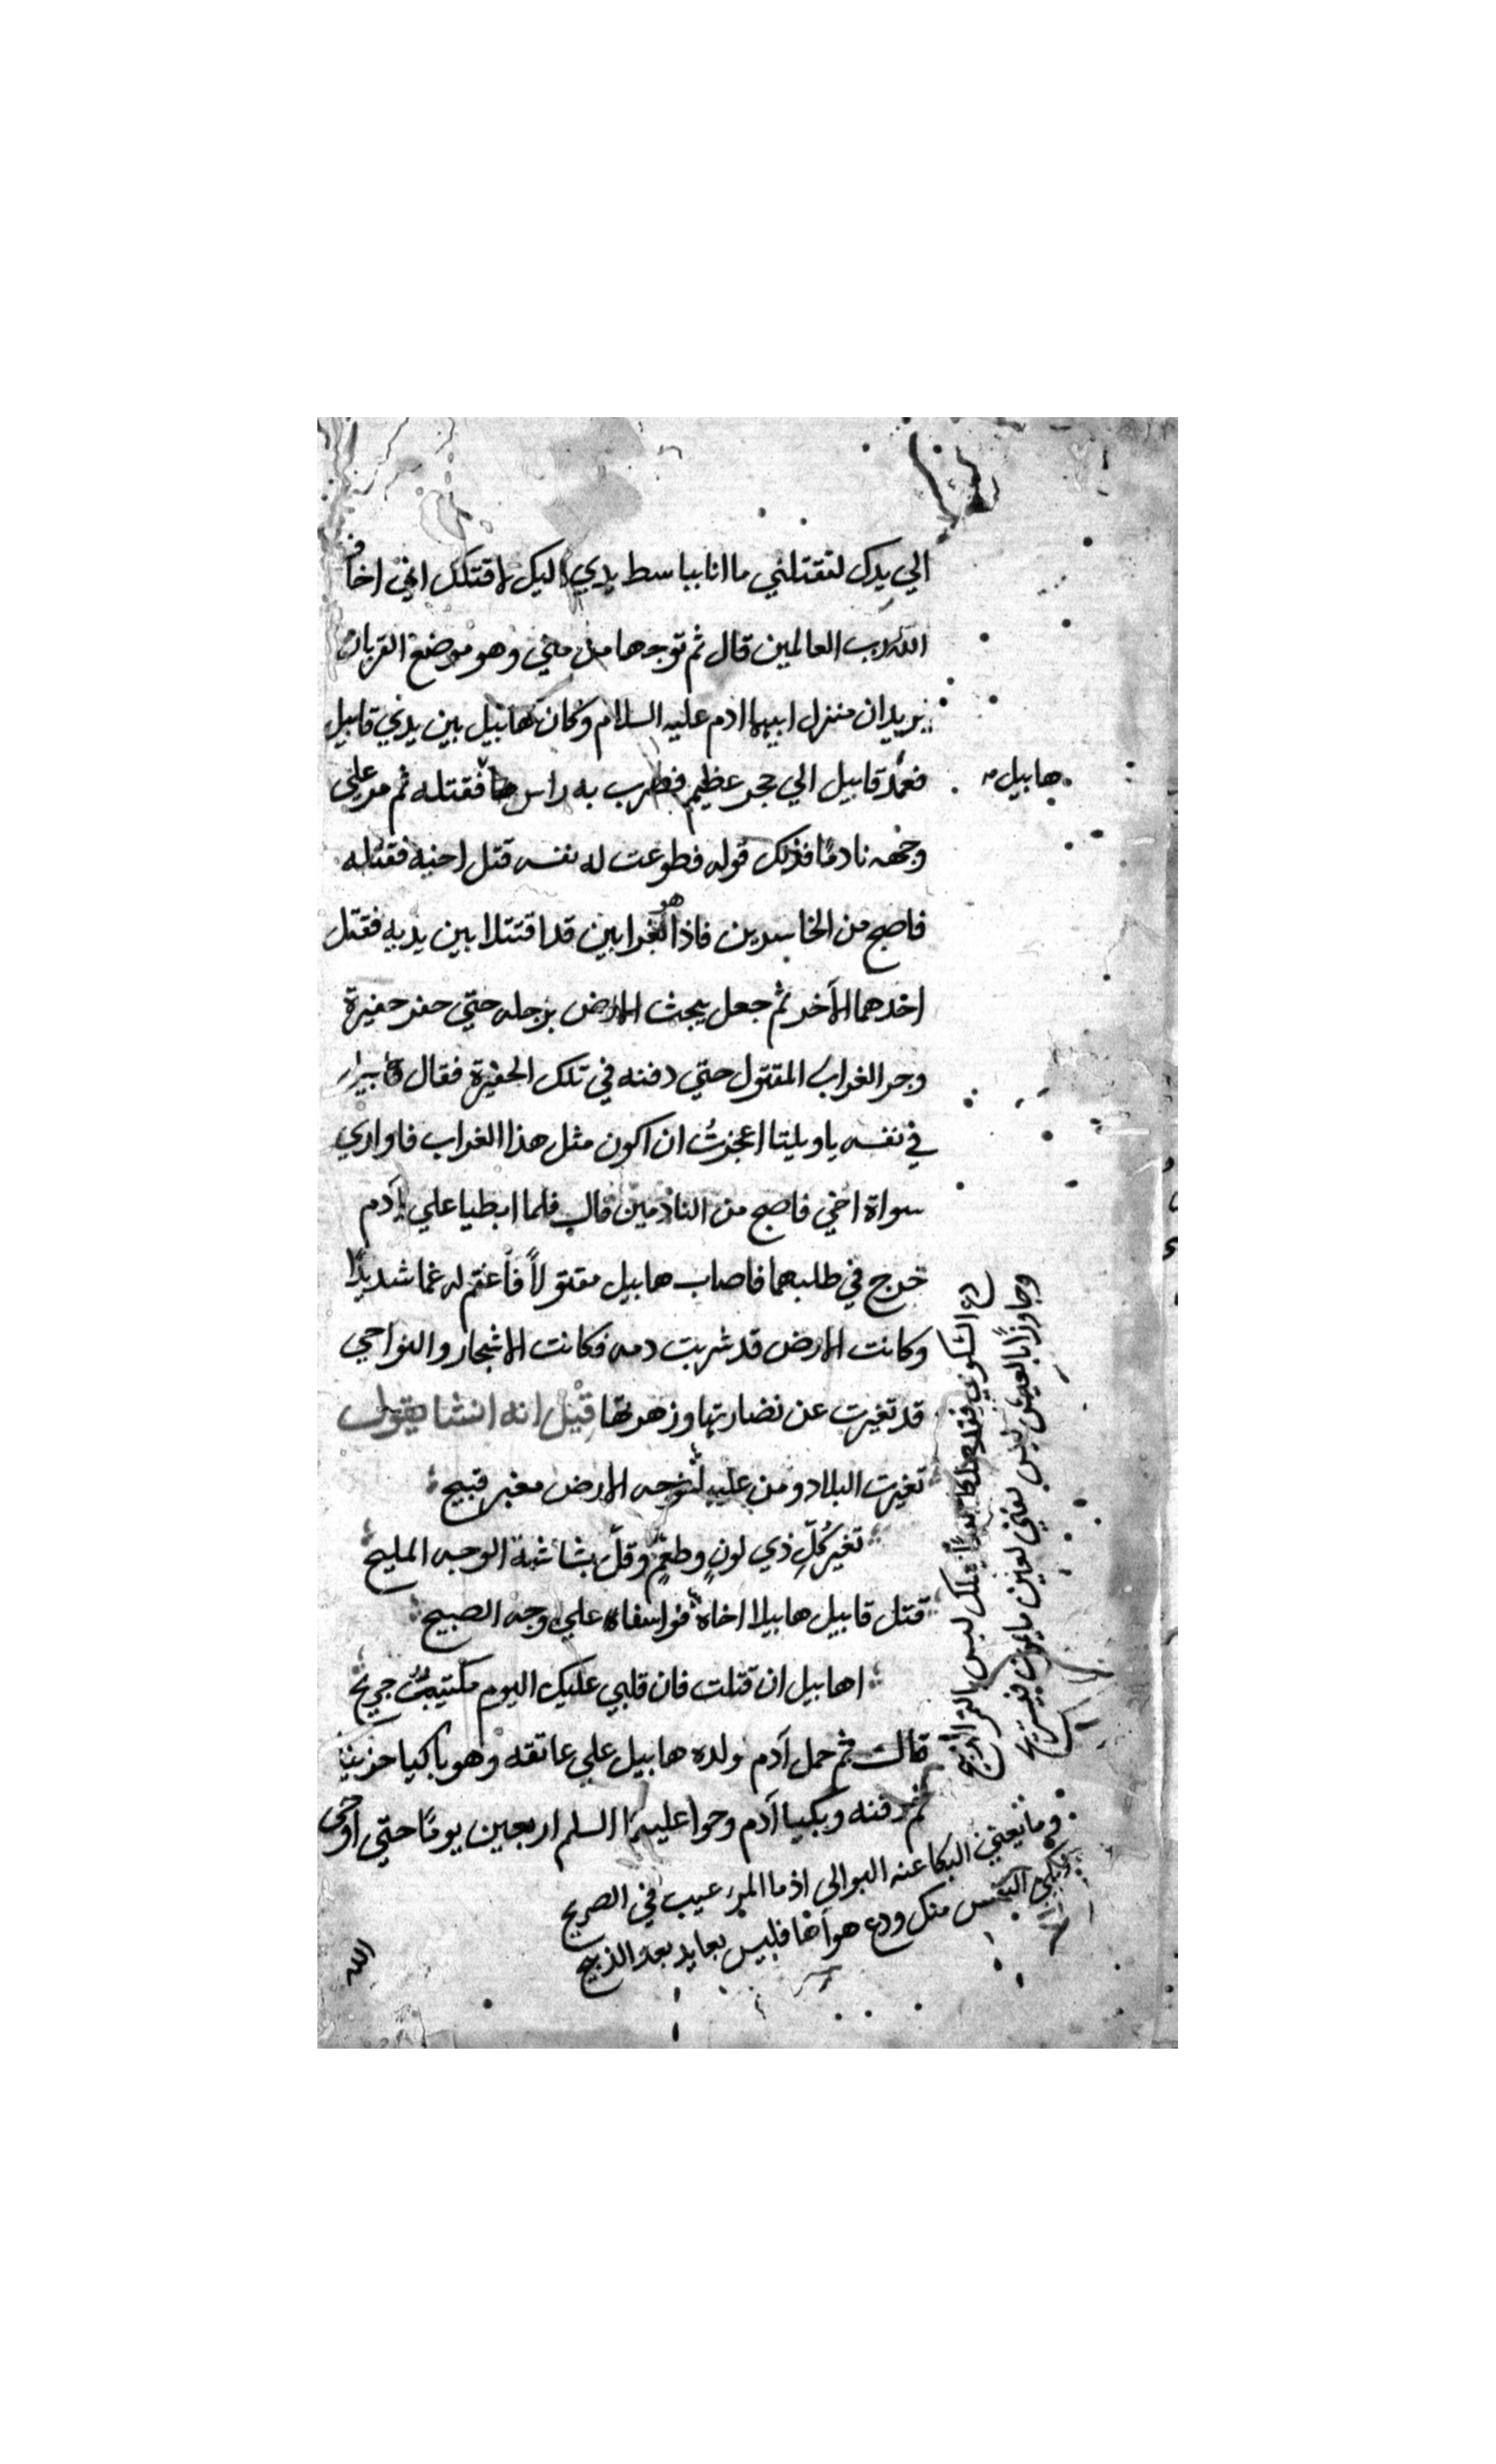 الي يدك لتقتلني ما انا بباسط يدي اليك لاقتلك اني اخاف
الله رب العالمين قال ثم توجها من مني وهو موضع القربان
يريدان منزل ابيهما ادم عليه السلام وكان هابيل بين يدي قابيل
فعمد قابيل الي حجر عظيم فضرب به راس فقتله ثم مر علي
هابيل
وجهه نادمًا فذلك قوله فطوعت له نفسه قتل اخيه فقتله
فاصبح من الخاسرين فاذا هو بغرابين قد اقتتلا بين يديه فقتل
احدهما الآخر ثم جعل يبحث الارض برجله حتي حفر حفيرة
وجر الغراب المقتول حتي دفنه في تلك الحفيرة فقال قابيل
في نفسه ياويلتا اعجزتُ ان اكون مثل هذا الغراب فاواري
سواة اخي فاصبح من النادمين قال فلما ابطيا علي آدم
خرج في طلبهما فاصاب هابيل مقتولاً فاغتم له غما شديدًا
وكانت الارض قد شربت دمه فكانت الاشجار والنواحي
قد تغيرت عن نضارتها وزهرتها قيل انه انشا يقول
تغيرت البلاد ومن عليها فوجه الارض مغبر قبيح
تغير كلّ ذي لونٍ وطعمٍ وقلّ بشاشة الوجه المليح
قتل قابيل هابيلا اخاه فواسفاه علي وجه الصبيح
اهابيل ان قتلت فان قلبي عليك اليوم مكتيبٌ جريح
قال ثم حمل آدم ولده هابيل علي عاتقه وهو باكيا حزينا
ثم دفنه وبكيا آدم وحوا عليهما السلم اربعين يومًا حتي اوحي
دع الشكوي فقد هلكا ليس بالثمن الربيح
وما يغني البكا عنه البواكي اذا ما المر غيب في الضريح
النفس منك ودع هواها فليس بعايد بعد الذبيح
الله